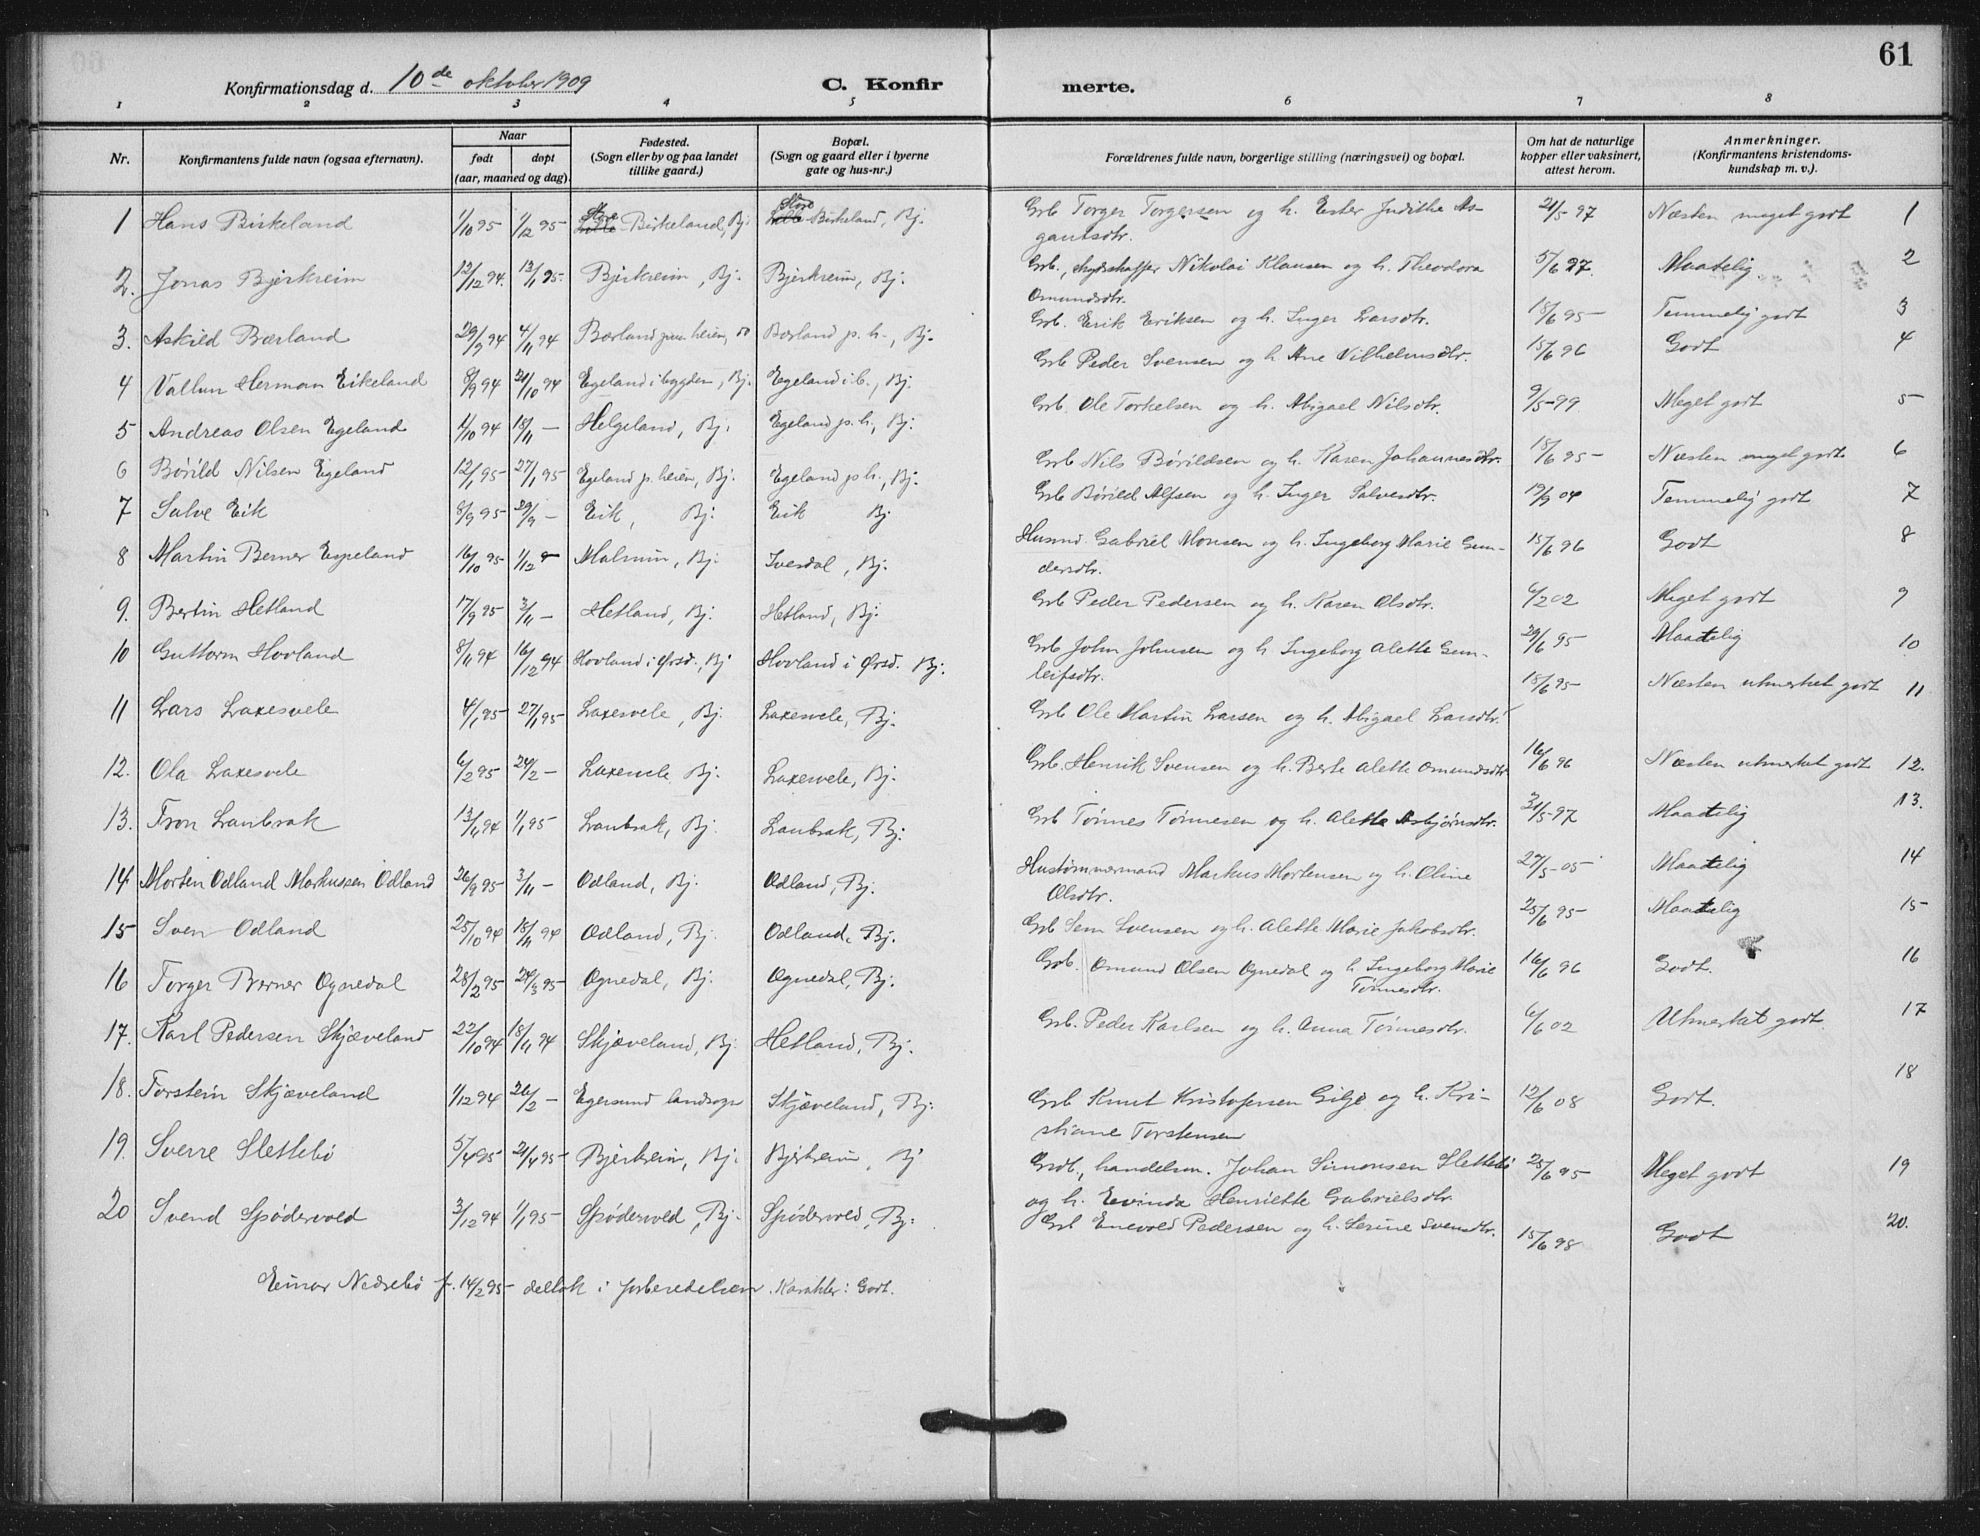 61
Konfirmationsdag d. 10de oktober 1909 C. Konfir merte.
1 2 3 4 5 6 7 8
Nr. Konfirmantens fulde navn (ogsaa efternavn). Naar født døpt (aar, maaned og dag). Fødested. (Sogn eller by og paa landet tillike gaard.) Bopæl. (Sogn og gaard eller i byerne gate og hus-nr.) Forældrenes fulde navn, borgerlige stilling (næringsvei) og bopæl. Om hat de naturlige kopper eller vaksinert, attest herom. Anmerkninger. (Konfirmantens kristendoms-kundskap m. v.).
1 Hans Birkeland 1/10 95 1/12 95 Store Birkeland, Bj. Store Birkeland, Bj. Grb Torger Torgersen og h. Ester Judithe As- 21/5 97 Næsten meget godt 1
gautsdtr.
2. Jonas Bjerkreim 12/12 94. 13/1 95. Bjerkreim, Bj. Bjerkreim, Bj. Grb., skydsskaffer Nikolai Klausen og h. Theodora 5/6 97. Maatelig 2
Omundsdtr.
3. Askild Bærland 29/9 94 4/11 94 Bærland paa heien, Bærland p. h., Bj. Grb. Erik Eriksen og h. Inger Larsdtr. 18/6 95 Temmelig godt 3
4 Herman Eikeland 8/9 94 21/10 94 Egeland i bygden, Bj. Egeland i b., Bj. Grb Peder Svensen og h. Ane Vilhelmsdtr. 15/6 96 Godt 4
5 Andreas Olsen Egeland 1/10 94 18/11 — Helgeland, Bj. Egeland p. h., Bj. Grb. Ole Torkelsen og h. Abigael Nilsdtr. 9/5 99 Meget godt 5
6 Børild Nilsen Egeland 12/1 95 27/1 95 Egeland p. heien, Bj. Egeland p h., Bj. Grb Nils Børildsen og h. Karen Johannesdtr. 18/6 95 Næsten meget godt 6
7 Salve Eik 8/9 95 29/9 — Eik, Bj. Eik Bj Grb Børild Alfsen og h. Inger Salvesdtr. 19/9 04 Temmelig godt 7
8 Martin Berner Espeland 16/10 95 1/12 Malmin, Bj. Ivesdal, Bj. Husmd. Gabriel Monsen og h. Ingeborg Marie Gun- 15/6 96 Godt 8
dersdtr.
9. Bertin Hetland 17/9 95 3/11 — Hetland, Bj. Hetland, Bj. Grb Peder Pedersen og h. Karen Olsdtr. 6/2 02 Meget godt 9
10 Guttorm Hovland 8/11 94 16/12 94 Hovland i Ørsd., Bj Hovland i Ørsd. Bj. Grb John Johnsen og h. Ingeborg Alette Gun- 29/6 95 Maatelig 10
leifsdtr.
11 Lars Laxesvele 4/1 95 27/1 95 Laxesvele, Bj. Laxesvele, Bj. Grb Ole Martin Larsen og h. Abigael Larsdtr. 18/6 95 Næsten utmerket godt 11
12. Ola Laxesvele 6/2 95 24/2 — Laxesvele Bj. Laxesvele, Bj. Grb. Henrik Svensen og h. Berte Alette Omundsdtr 16/6 96 Næsten utmerket godt 12.
13. Tron Laubrak 13/11 94 1/1 95 Laubrak, Bj. Laubrak, Bj. Grb Tønnes Tønnesen og h. Alette Asbjørnsdtr. 31/5 97 Maatelig 13.
14 Morten Odland Markussen Odland 26/9 95 3/11 — Odland, Bj. Odland, Bj. Hustømmermand Markus Mortensen og h. Oline 27/5 05 Maatelig 14
Olsdtr.
15 Sven Odland 25/10 94 18/11 94 Odland, Bj. Odland, Bj. Grb Svensen og h. Alette Marie Jakobsdtr. 25/6 95 Maatelig 15
16 Torger Berner Ognedal 28/2 95 24/3 95 Ognedal, Bj. Ognedal, Bj. Grb. Omund Olsen Ognedal og h. Ingeborg Marie 16/6 96 Godt. 16
Tønnesdtr.
17. Karl Pedersen Skjæveland 22/10 94 18/11 94 Skjæveland, Bj. Hetland, Bj. Grb. Peder Karlsen og h. Anna Tønnesdtr. 6/6 02 Utmerket godt 17
18. Torstein Skjæveland 1/12 94 26/2 — Egersund landsogn Skjæveland, Bj. Grb Knut Kristofersen Gilje og h. Kri- 12/6 08 Godt. 18
stiane Torstensen
19. Sverre Slettebø 5/4 95 21/4 95 Bjerkreim, Bj. Bjerkreim, Bj Grdb., handelsm. Johan Simonsen Slettebø 25/6 95 Meget godt 19
og h. Evinda Henriette Gabrielsdtr.
20 Svend Spødervold 3/12 94 1/1 95 Spødervold, Bj. Spødervold, Bj. Grb Enevold Pedersen og h. Serine Svensdtr. 15/6 98 Godt 20.
Einar Nedrebø f. 14/2 95 deltok i forberedelsen. Karakter: Godt.